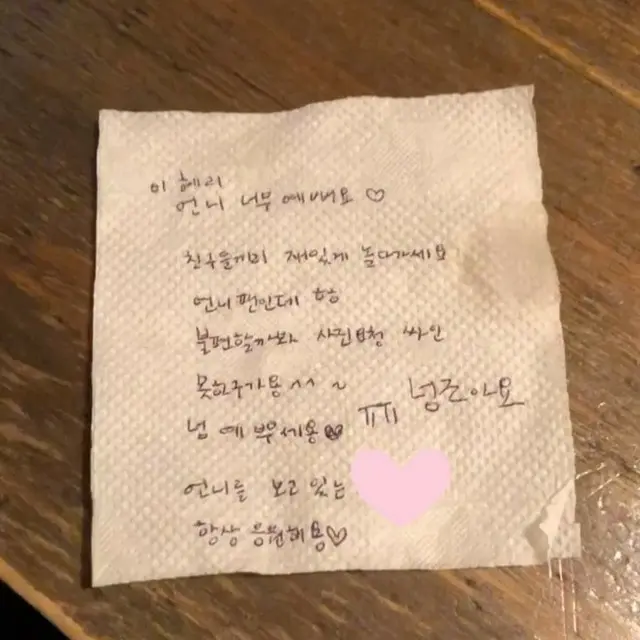 이 혜리
언니 너무 예뻐요 ♡
친구들끼리 재밌게 놀다가세요
언니 팬인데 항
불편할까봐 사진요청 싸인
못하구가용 ^^ ~
넘 예뿌세용♥ ㅠㅠ 넘조아요
언니를 보고 있는
항상 응원해용♡